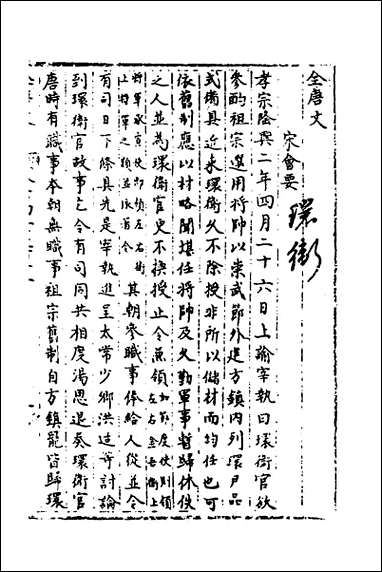 全唐文
宋會要
環衛
孝宗隆興二年四月二十六日上諭宰執曰環衛官欲
參酌祖宗選用將帥以崇武節外建方鎮內列環尹品
式備具近來環衛久不除授非所以儲材而均任也可
依舊制應以材略聞堪任將帥及久勤軍事暫歸休佚
之人並為環衛官更不換授止令兼領如節度使則領左右金吾衛上
將軍承宣使則領左右衛上將軍之類並依舊令其朝參職事俸給人從並令
有司日下條具先是宰執進呈太常少卿洪适等討論
到環衛官故事乞令有司同共相度湯思退奏環衛官
唐時有職事本朝無職事祖宗舊制自方鎮罷皆歸環